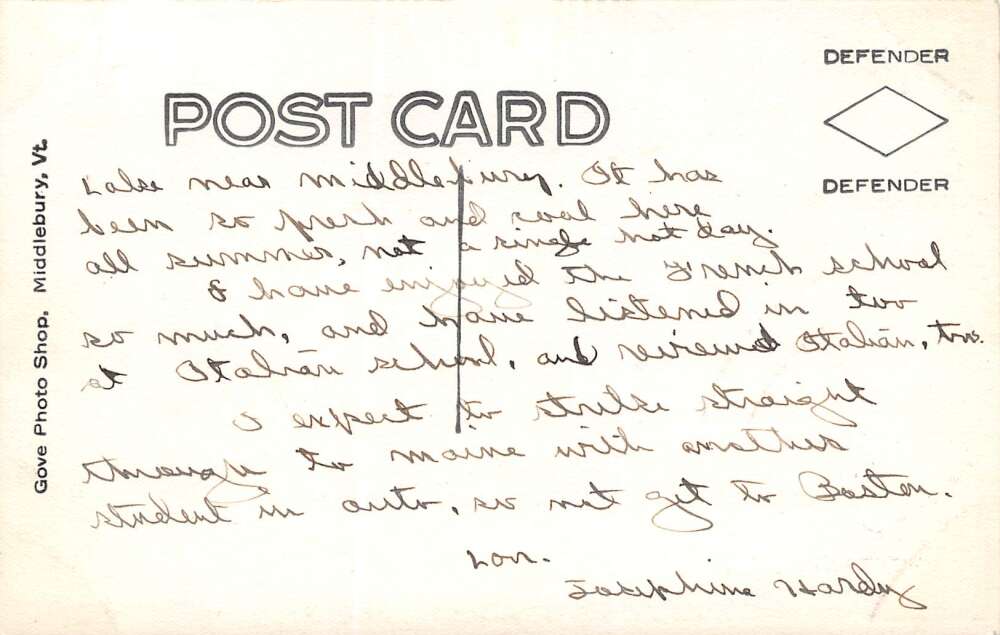 DEFENDER
POST CARD
DEFENDER
Gove Photo Shop. Middlebury, Vt.
Lake near Middlebury. It has
been so fresh and cool here
all summer, not a single hot day.
I have enjoyed the French school
so much, and have listened in too
at Italian school, and reviewed Italian, too.
I expect to strike straight
through to Maine with another
student in auto, so not get to Boston.
Love.
Josephine Hardy